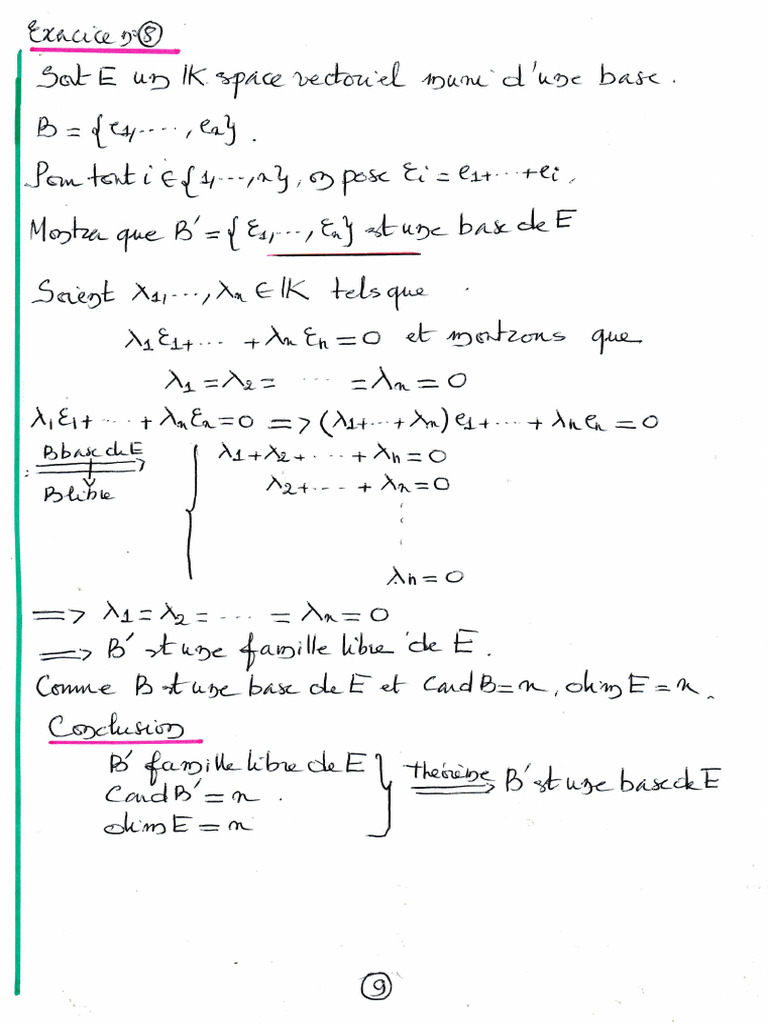 Exercice n°⑧
Soit E un IK space vectoriel muni d'une base.
B = {e1, ..., en}.
Pour tout i ∈ {1, ..., n}, on pose εi = e1 + ... + ei,
Montrer que B' = {ε1, ..., εn} est une base de E
Soient λ1, ..., λn ∈ IK tels que
λ1ε1 + ... + λnεn = 0 et montrons que
λ1 = λ2 = ... = λn = 0
λ1ε1 + ... + λnεn = 0 => (λ1 + ... + λn)e1 + ... + λnen = 0
B base de E
=> { λ1 + λ2 + ... + λn = 0
B libre
λ2 + ... + λn = 0
⋮
λn = 0
=> λ1 = λ2 = ... = λn = 0
=> B' est une famille libre de E.
Comme B est une base de E et Card B = n, dim E = n.
Conclusion
B' famille libre de E
Card B' = n.
dim E = n
} théorème => B' est une base de E
⑨